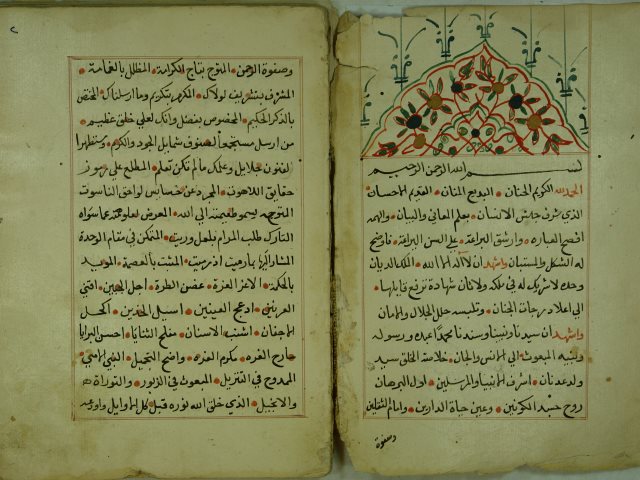 بسم الله الرحمن الرحيم
الحمد لله الكريم الحنان البديع المنان القديم الاحسان
الذي شرف جنس الانسان بعلم المعاني والبيان والهمه
افصح العباره وارشق البراعة على السن البراعة فاوضح
له الشكل والمستبان واشهد ان لا اله الا الله الملك الديان
وحده لا شريك له في ملكه ولا ثان شهادة ترفع قايلها
الى اعلا درجات الجنان وتلبسه حلل الجلال والامان
واشهد ان سيدنا ونبينا وسندنا محمدا عبده ورسوله
ونبيه المبعوث الى الانس والجان خلاصة الخلق سيد
ولد عدنان اشرف الانبيا والمرسلين اول البرهان
روح جسد الكونين وعين حياة الدارين وامام الثقلين
وصفوة
٢
وصفوة الرحمن المتوج بتاج الكرامة المظلل بالغمامة
المشرف بتشريف لولاك المكرم بتكريم وما ارسلناك المختص
بالذكر الحكيم المخصوص بفضل وانك لعلى خلق عظيم
من ارسل مستجمعا لصنوف شمايل الجود والكرم ومستظهرا
لفنون جلايل وعلمك ما لم تكن تعلم المطلع على رموز
حقايق اللاهوت المجرد عن خسايس لواحق الناسوت
المتوجه بسمو طعيمته الى الله المعرض بعلو همته عما سواه
التارك طلب المرام بلعل وريت المتمكن في مقام الوحدة
المشار اليها بما رميت اذ رميت المثبت بالعصمة المويد
بالحكمة الاغر الغرة غصن الطرة اجل الجبين اقنى
العرنين ادعج العينين اسيل الخدين اكحل
الاجفان اشنب الاسنان مفلج الثنايا احسن البرايا
مدارج القره مكرم العزه واضح التبجيل النبي الامي
الممدوح في التنزيل المبعوث في الزبور والتوراة
والانجيل الذي خلق الله نوره قبل كل اوايل واودعه